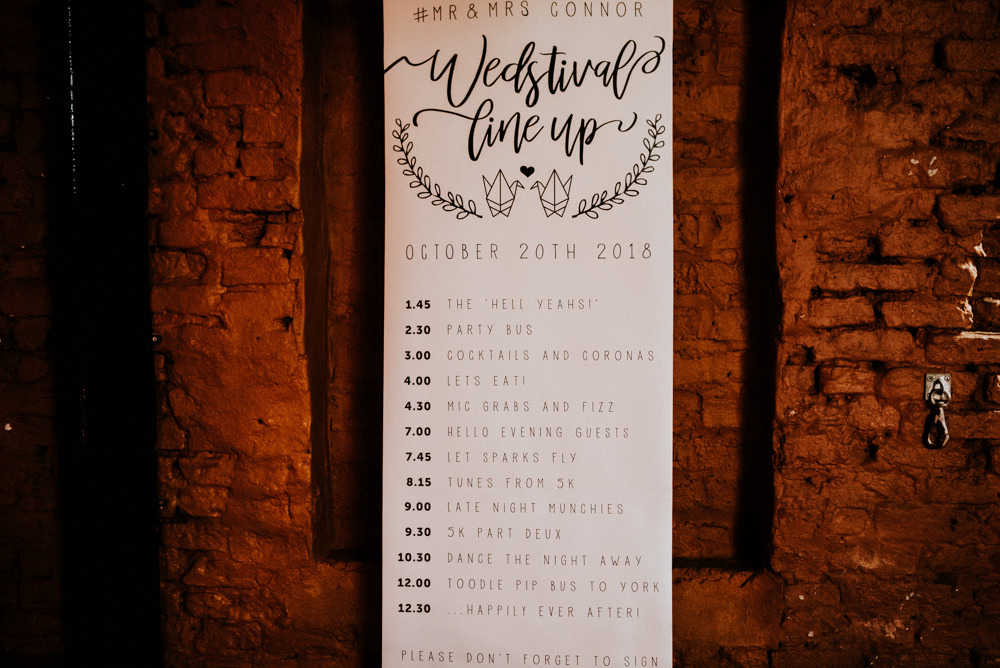 #MR & MRS CONNOR
Wedstival
line up
OCTOBER 20TH 2018
1.45 THE 'HELL YEAHS!'
2.30 PARTY BUS
3.00 COCKTAILS AND CORONAS
4.00 LETS EAT!
4.30 MIC GRABS AND FIZZ
7.00 HELLO EVENING GUESTS
7.45 LET SPARKS FLY
8.15 TUNES FROM 5K
9.00 LATE NIGHT MUNCHIES
9.30 5K PART DEUX
10.30 DANCE THE NIGHT AWAY
12.00 TOODLE PIP BUS TO YORK
12.30 ...HAPPILY EVER AFTER!
PLEASE DON'T FORGET TO SIGN